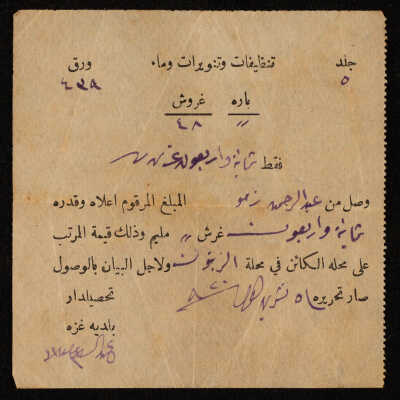 جلد تنظيفات وتنويرات وماء ورق
٥ ٤٣٩
باره غروش
〃 ٤٨
فقط ثمانية واربعون غرش
وصل من عبدالرحمن زمو المبلغ المرقوم اعلاه وقدره
ثمانية واربعون غرش 〃 مليم وذلك قيمة المرتب
على محله الكائن في محلة الزيتون ولاجل البيان بالوصول
صار تحريره تشرين تحصيلدار
بلدية غزه